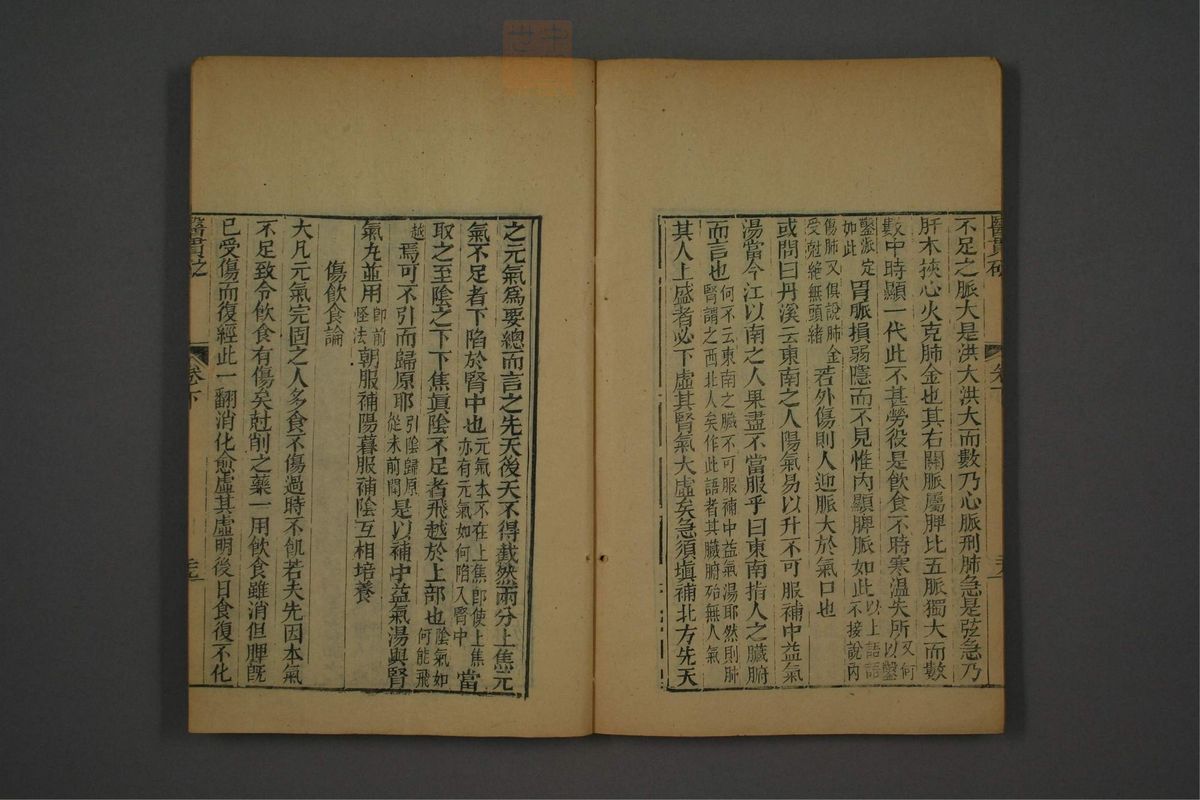 醫貫砭
卷下
不足之脈大是洪大洪大而數乃心脈刑肺急是弦急乃
肝木挾心火克肺金也其右關脈屬脾比五脈獨大而數
數中時顯一代此不甚勞役是飲食不時寒溫失所又何以鑿
鑿派定如此胃脈損弱隱而不見惟內顯脾脈如此以上語語不接說內
傷肺又俱說肺金受尅絕無頭緒若外傷則人迎脈大於氣口也
或問曰丹溪云東南之人陽氣易以升不可服補中益氣
湯當今江以南之人果盡不當服乎曰東南指人之臟腑
而言也何不云東南之臟不可服補中益氣湯耶然則肺腎謂之西北人矣作此語者其臟腑殆無人氣
其人上盛者必下虛其腎氣大虛矣急須塡補北方先天
之元氣爲要總而言之先天後天不得截然兩分上焦元
氣不足者下陷於腎中也元氣本不在上焦卽使上焦亦有元氣如何陷入腎中當
取之至陰之下下焦眞陰不足者飛越於上部也陰氣如何能飛
越焉可不引而歸原耶引陰歸原從未前聞是以補中益氣湯與腎
氣丸並用卽前怪法朝服補陽暮服補陰互相培養
傷飲食論
大凡元氣完固之人多食不傷過時不飢若夫先因本氣
不足致令飲食有傷矣尅削之藥一用飲食雖消但脾旣
已受傷而復經此一翻消化愈虛其虛明後日食復不化
醫貫之
卷下